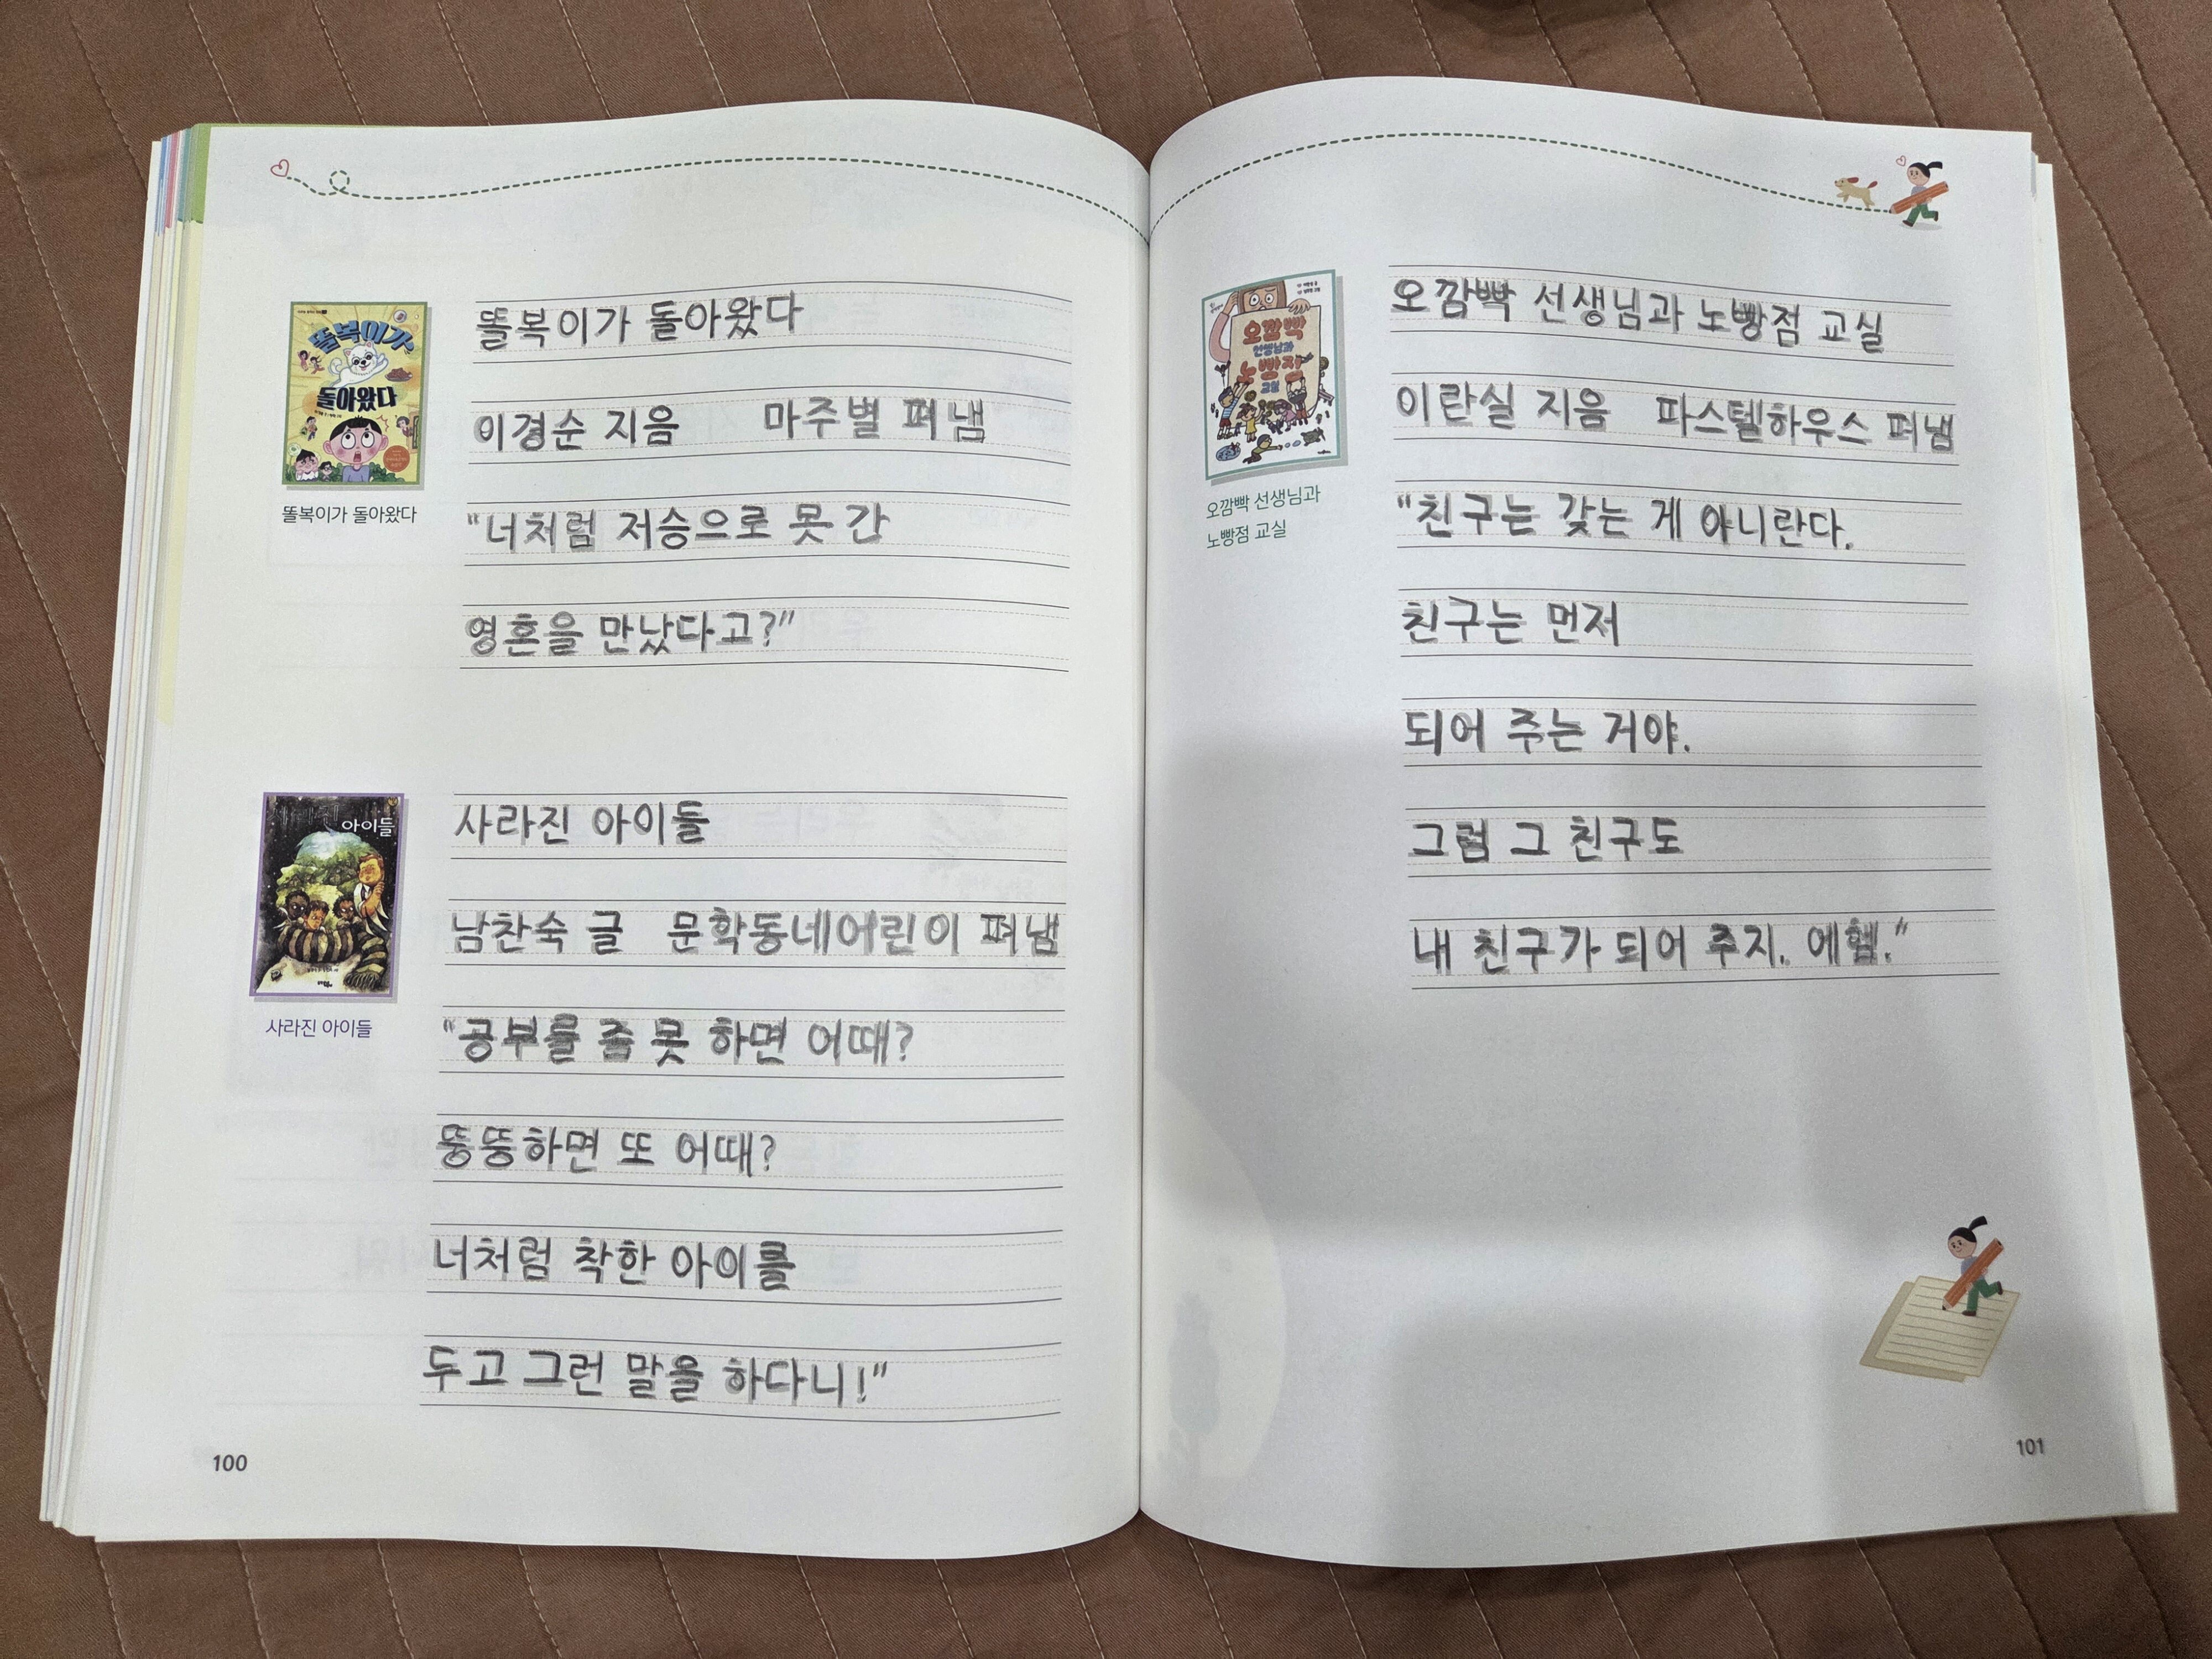 똘복이가
돌아왔다
똘복이가 돌아왔다
똘복이가 돌아왔다
이경순 지음 마주별 펴냄
"너처럼 저승으로 못 간
영혼을 만났다고?"
아이들
사라진 아이들
사라진 아이들
남찬숙 글 문학동네어린이 펴냄
"공부를 좀 못 하면 어때?
뚱뚱하면 또 어때?
너처럼 착한 아이를
두고 그런 말을 하다니!"
100
오깜빡
선생님과
노빵점
교실
오깜빡 선생님과
노빵점 교실
오깜빡 선생님과 노빵점 교실
이란실 지음 파스텔하우스 펴냄
"친구는 갖는 게 아니란다.
친구는 먼저
되어 주는 거야.
그럼 그 친구도
내 친구가 되어 주지. 에헴."
101